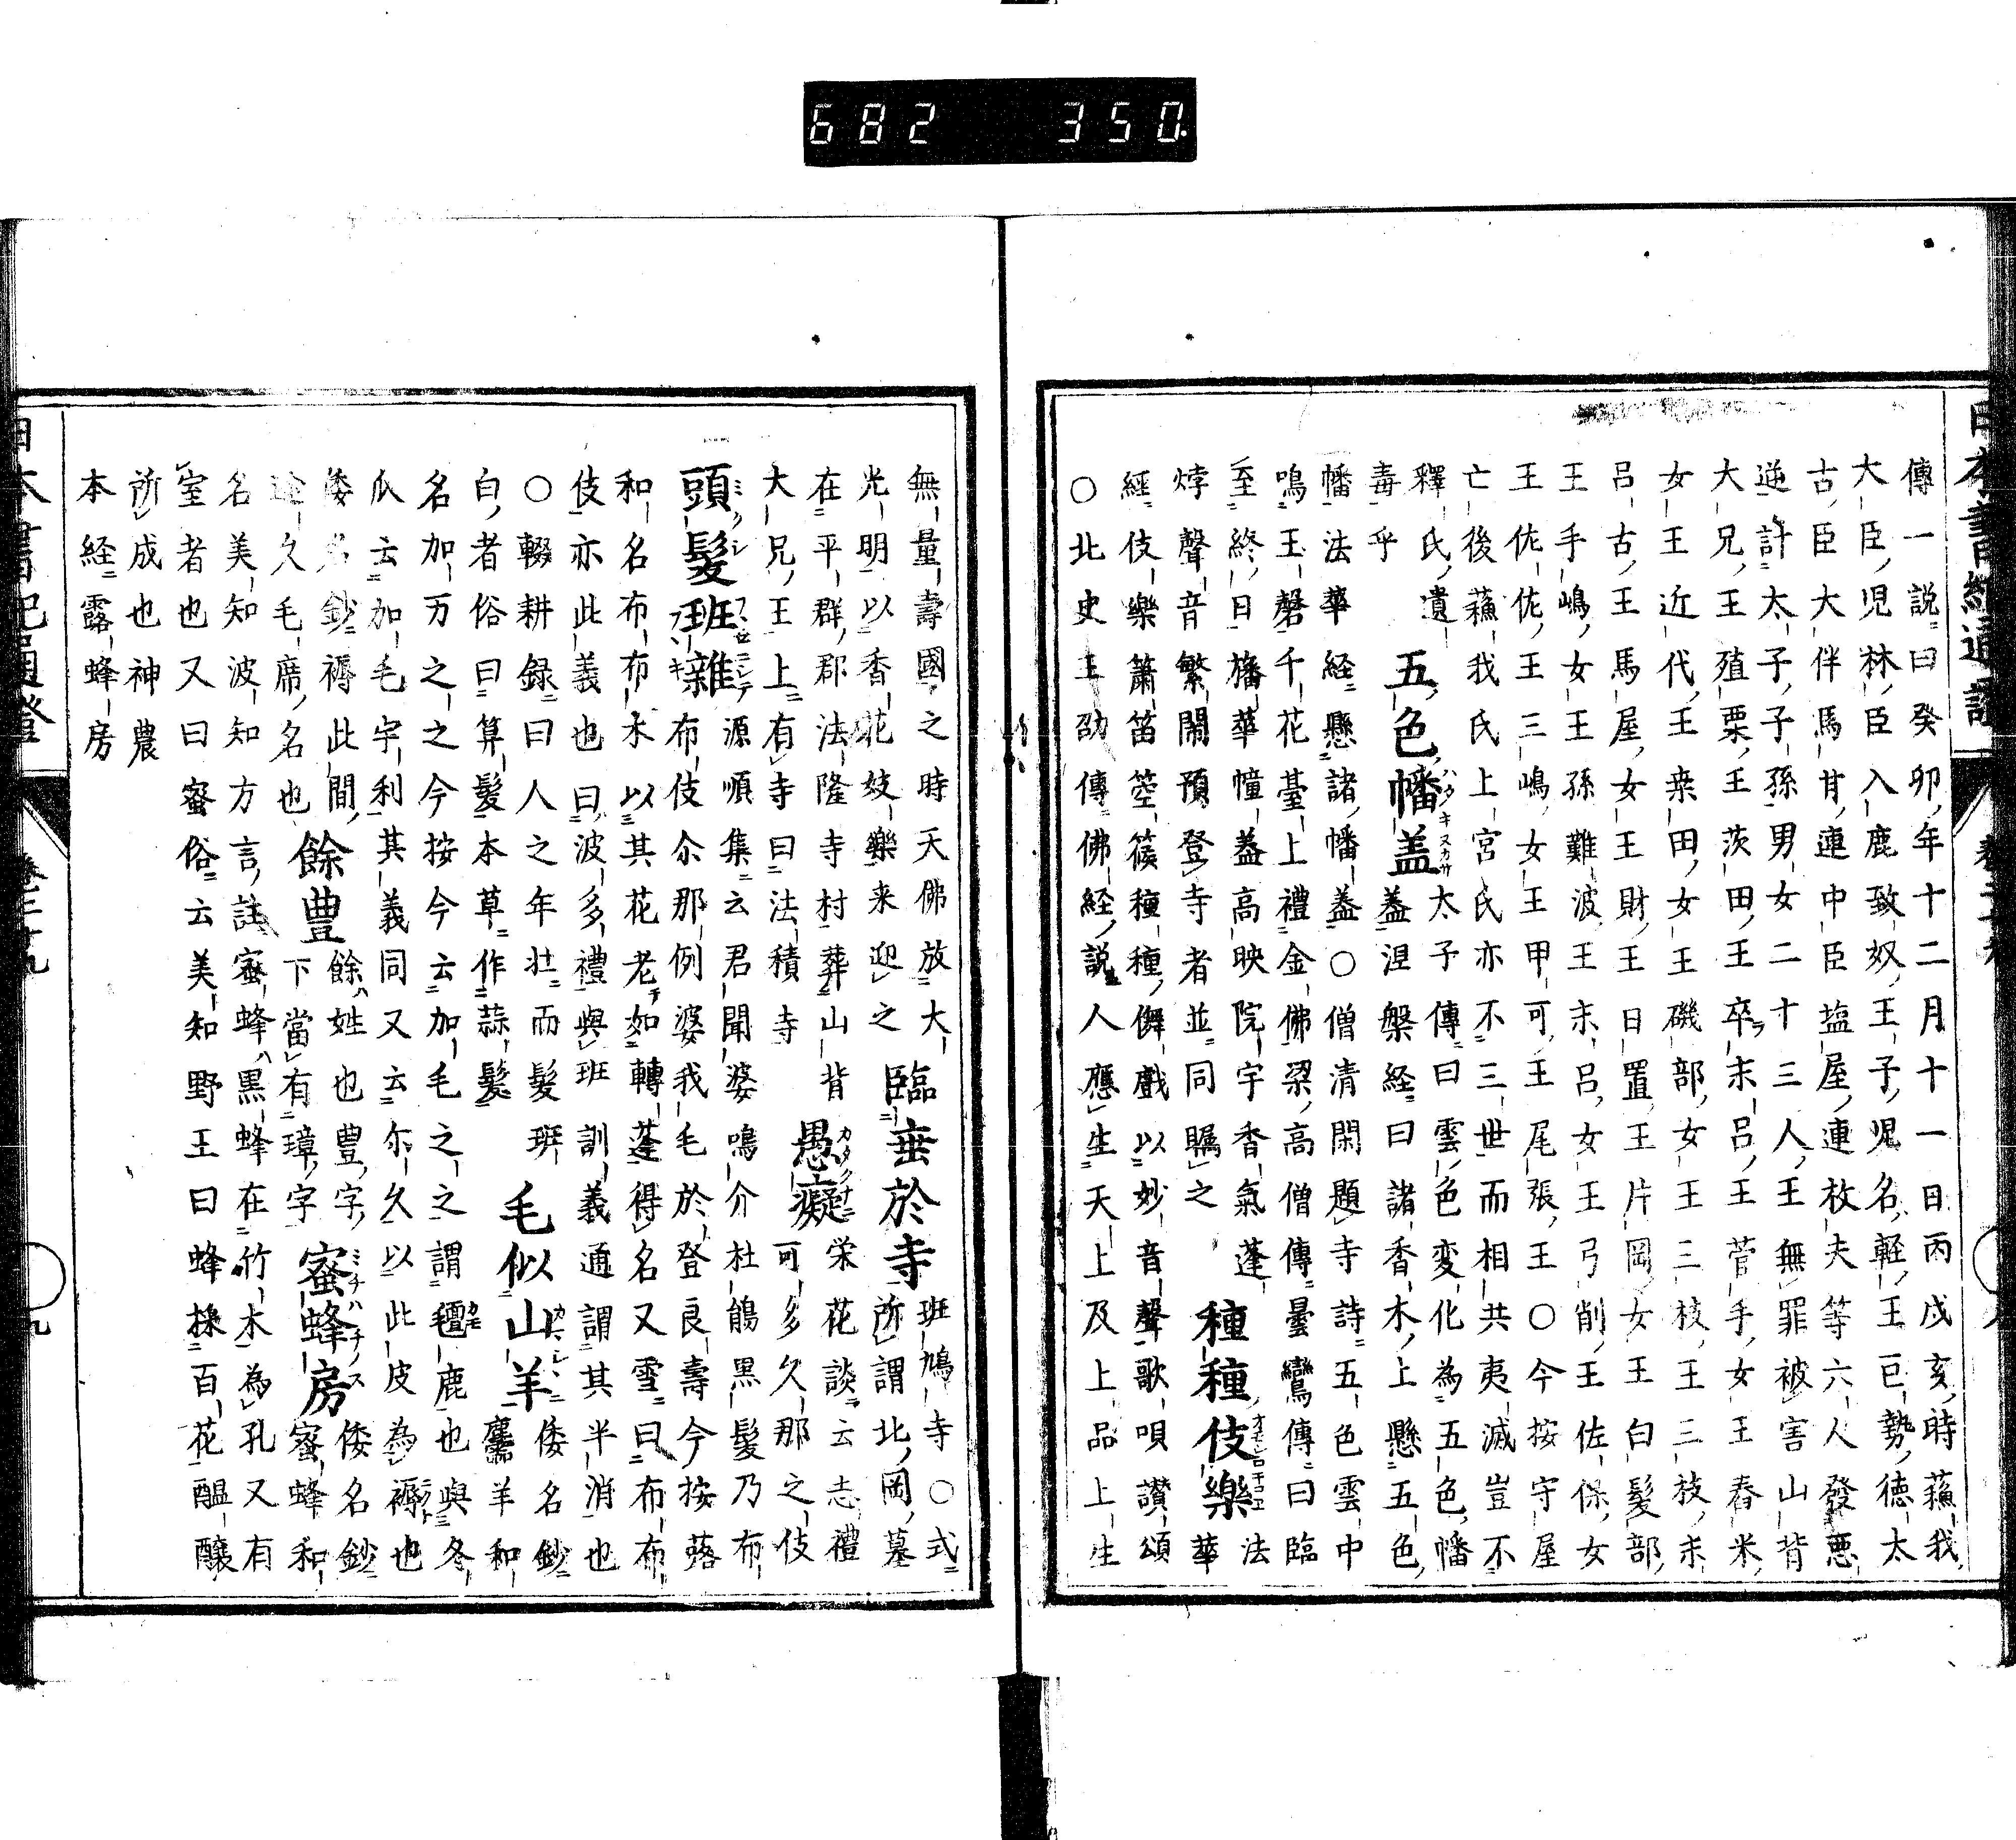 682 350
傳一説曰癸卯年十二月十一日丙戌亥時蘓我
大臣児林臣入鹿致奴王子児名軽王巨勢徳太
古臣大伴馬甘連中臣塩屋連枚夫等六人發悪
逆計太子子孫男女二十三人王無罪被害山背
大兄王殖栗王茨田王卒末呂王菅手女王舂米
女王近代王桒田女王礒部女王三枝王三枝末
呂古王馬屋女王財王日置王片岡女王白髪部
王手嶋女王孫難波王末呂女王弓削王佐保女
王佐佐王三嶋女王甲可王尾張王〇今按守屋
亡後蘓我氏上宮氏亦不三世而相共夷滅豈不
釋氏遺
毒乎
五色幡盖
ハタキヌカサ
太子傳曰雲色変化為五色幡
盖涅槃経曰諸香木上懸五色
幡法華経懸諸幡盖〇僧清閑題寺詩五色雲中
鳴玉磬千花臺上禮金佛梁高僧傳曇鸞傳曰臨
至終日旛華幢盖高映院宇香氣蓬
㶿聲音繁鬧預登寺者並同矚之
種種伎樂
法
華
經伎樂簫笛箜篌種種儛戲以妙音聲歌唄讃頌
〇北史王劭傳佛経説人應生天上及上品上生
無量壽國之時天佛放大
光明以香花妓樂来迎之
臨垂於寺
班鳩寺〇式
所謂北岡墓
在平群郡法隆寺村葬山背
大兄王上有寺曰法積寺
愚癡
カタクナニ
栄花談云志禮
可多久那之伎
頭髮班雜
源順集云君聞婆鳴介杜鵑黒髮乃布
布伎尒那例婆我毛於登良壽今按蕗
和名布布木以其花老如轉蓬得名又雪曰布布
伎亦此義也曰波多禮與班訓義通謂其半消也
〇輟耕録曰人之年壮而髮班
白者俗曰算髮本草作蒜髮
毛似山羊
カマシシニ
倭名鈔
麢羊和
名加万之之今按今云加毛之之謂氊鹿也與冬
瓜云加毛宇利其義同又云尒久以此皮為褥也
倭名鈔褥此間
途久毛席名也
餘豊
餘姓也豊字
下當有璋字
蜜蜂房
ミチハチノス
倭名鈔
蜜蜂和
名美知波知方言註蜜蜂黒蜂在竹木為孔又有
室者也又曰蜜俗云美知野王曰蜂採百花醞醸
所成也神農
本経露蜂房